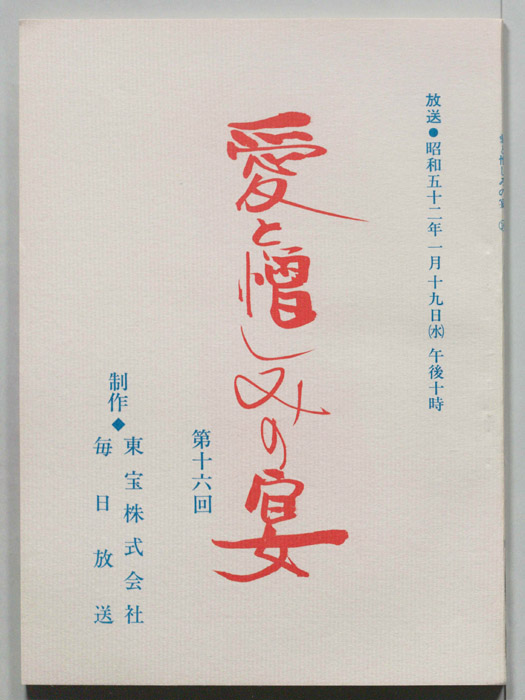 放送●昭和五十二年一月十九日㈬ 午後十時
愛と憎しみの宴
第十六回
制作◆東宝株式会社
毎日放送